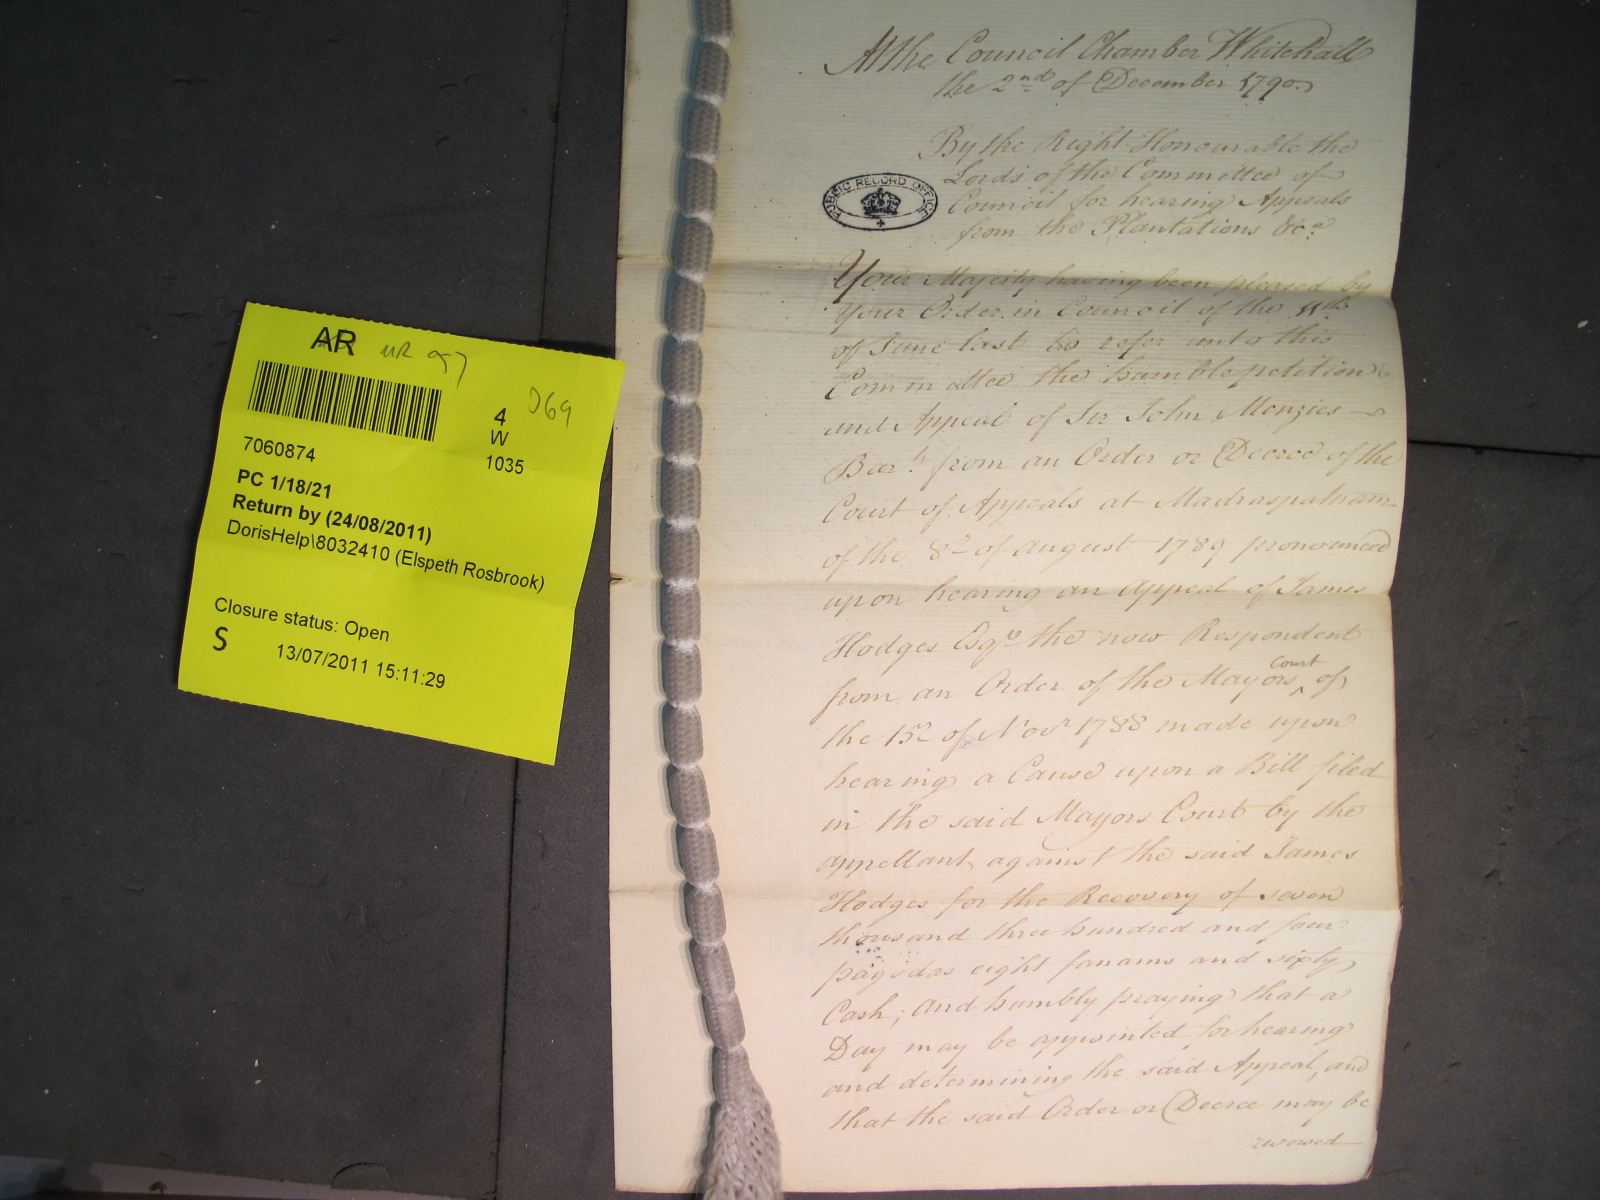 AR
UR 97
D69
4
W
1035
7060874
PC 1/18/21
Return by (24/08/2011)
DorisHelp\8032410 (Elspeth Rosbrook)
Closure status: Open
S
13/07/2011 15:11:29
PUBLIC RECORD OFFICE
At the Council Chamber Whitehall
the 2nd of December 1790.
By the Right Honourable the
Lords of the Committee of
Council for hearing Appeals
from the Plantations &ca
Your Majesty having been pleased by
Your Order in Council of the 11th
of June last to refer unto this
Committee the humble petition
and Appeal of Sir John Menzies
Bart from an Order or Decree of the
Court of Appeals at Madraspatnam
of the 8th of August 1789 pronounced
upon hearing an Appeal of James
Hodges Esqr the now Respondent
from an Order of the Mayors Court of
the 15th of Novr 1788 made upon
hearing a Cause upon a Bill filed
in the said Mayors Court by the
appellant against the said James
Hodges for the Recovery of seven
thousand three hundred and four
pagodas eight fanams and sixty
Cash; and humbly praying that a
Day may be appointed for hearing
and determining the said Appeal, and
that the said Order or Decree may be
reversed